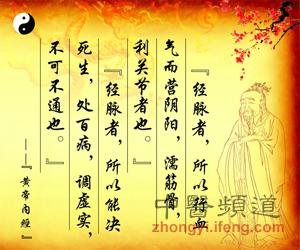 『经脉者，所以行血
气而营阴阳，濡筋骨，
利关节者也。』
『经脉者，所以能决
死生，处百病，调虚实，
不可不通也。』
——『黄帝内經』
中醫頻道
zhongyi.ifeng.com